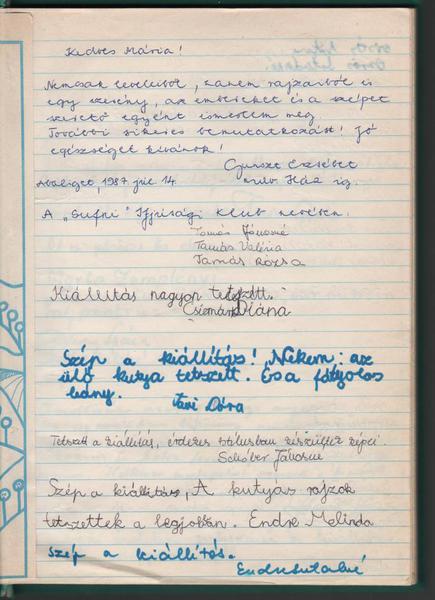 Kedves Mária!
Nemcsak leveleiből, hanem rajzaiból is
egy szerény, az embereket és a szépet
szerető egyént ismertem meg.
További sikeres bemutatkozást! Jó
egészséget kívánok!
Erzsébet
Abaliget, 1987. júl. 14. műv. Ház ig.
A "Sufni" Ifjúsági Klub nevében.
Tamás Jánosné
Tamás Valéria
Tamás Rózsa
Kiállítás nagyon tetszett.
Diána
Szép a kiállítás! Nekem: az
ülő kutya tetszett. És a fátyolos
leány.
Dóra
Tetszett a kiállítás, érdekes stílusban készültek képei
Schóber Jánosné
Szép a kiállítás, A kutyás rajzok
tetszettek a legjobban. Endre Melinda
Szép a kiállítás.